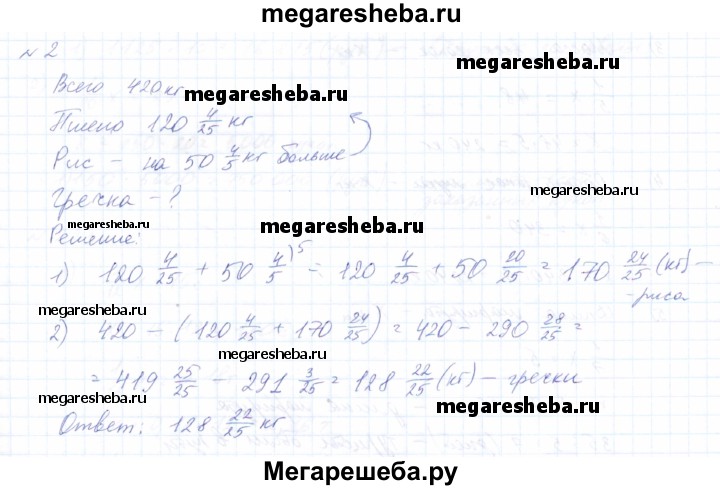 megaresheba.ru
№ 2
Всего 420 кг
megaresheba.ru megaresheba.ru
Пшено 120 4/25 кг
Рис – на 50 4/5 кг больше
megaresheba.ru
Гречка – ?
megaresheba.ru megaresheba.ru
Решение:
1) 120 4/25 + 50 4/5 )5 = 120 4/25 + 50 20/25 = 170 24/25 (кг) –
– риса
megaresheba.ru megaresheba.ru
2) 420 – (120 4/25 + 170 24/25) = 420 – 290 28/25 =
megaresheba.ru
= 419 25/25 – 291 3/25 = 128 22/25 (кг) – гречки
megaresheba.ru megaresheba.ru
Ответ: 128 22/25 кг
Мегарешеба.ру